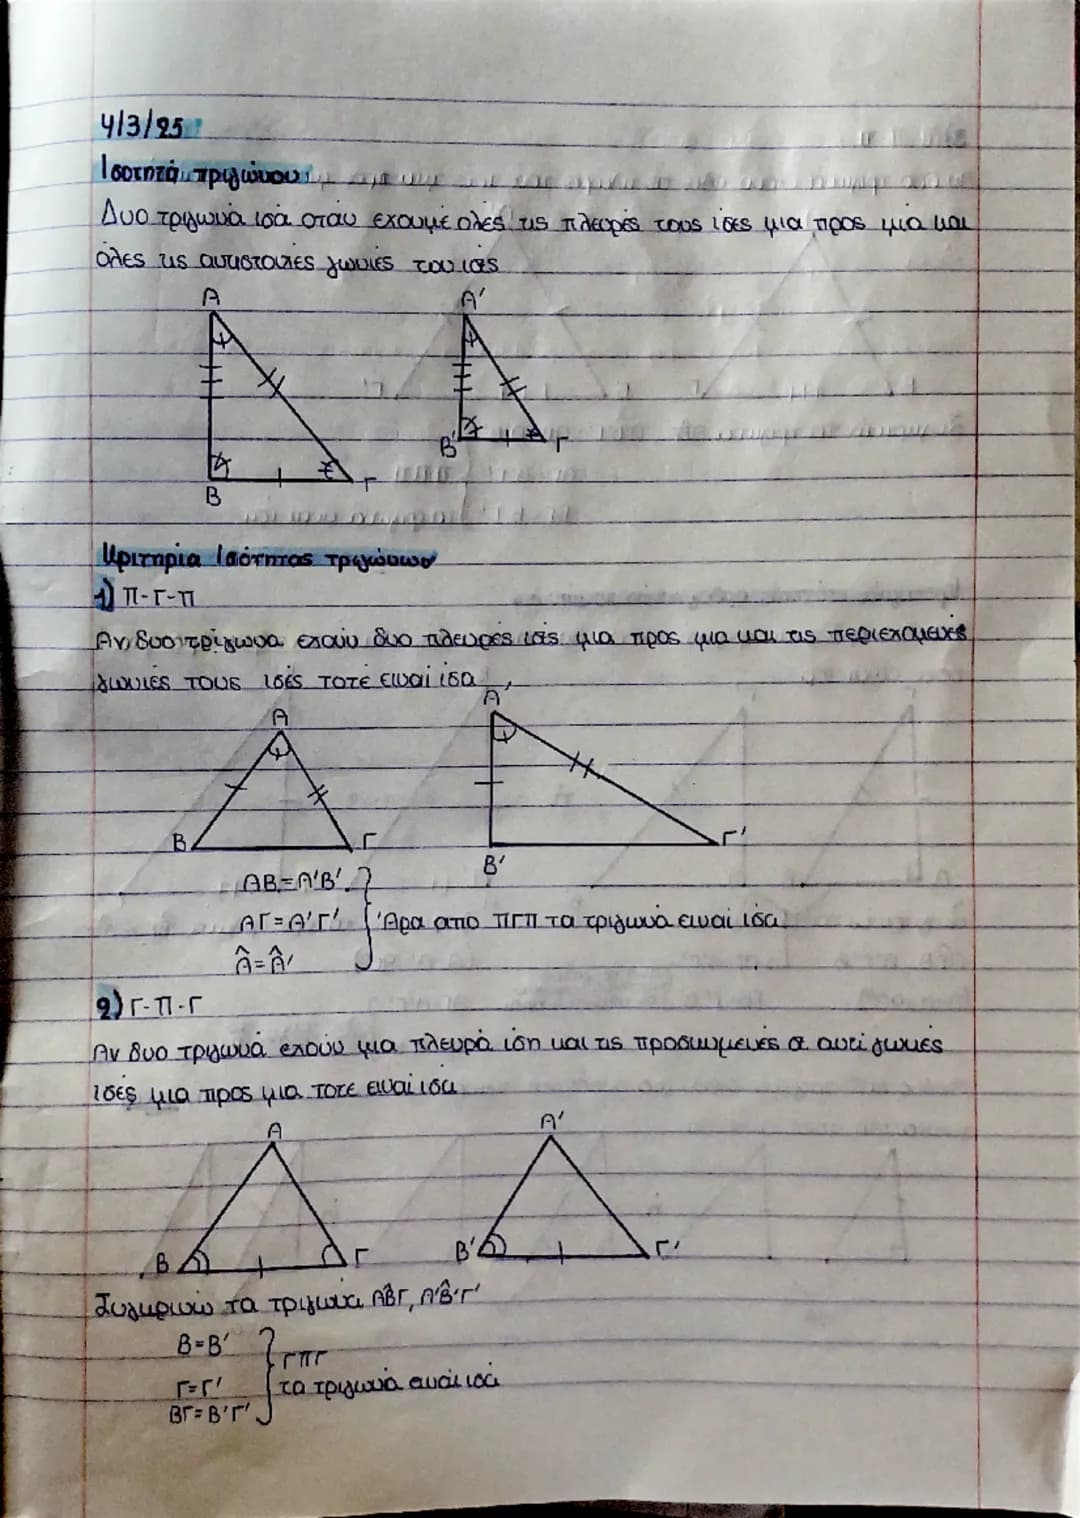 4/3/25
Ισοτητά τριγώνου
Δυο τριγωνά ισά οτάν εχουμέ ολές τις πλευρές τους ίσες μια προς μιά και
όλες τις αντιστοιχές γωνιές του ισές
Α
Α'
Β
Γ
Β'
Γ
Κριτηρία Ισότητας τριγώνων
1) Π-Γ-Π
Αν δυο τρίγωνα εχουν δυο πλευρές ισές μια προς μια και τις περιεχομενές
γωνιές τους ισές τοτέ ειναί ισα
Α
Α'
Β
Γ
Β'
Γ'
ΑΒ=Α'Β'
ΑΓ=Α'Γ' Άρα απο ΠΓΠ τα τριγωνά ειναι ισά
Â=Â'
2) Γ-Π-Γ
Αν δυο τριγωνά εχούν μια πλευρά ιση και τις προσκυμενές σ αυτί γωνιές
ισές μια προς μια τοτε ειναί ισα
Α
Α'
Β
Γ
Β'
Γ'
Συγκρινω τα τριγωνα ΑΒ̂Γ, Α'Β̂'Γ'
Β=Β'
ΓΠΓ
Γ=Γ' τα τριγωνά ειναί ισά
ΒΓ=Β'Γ'